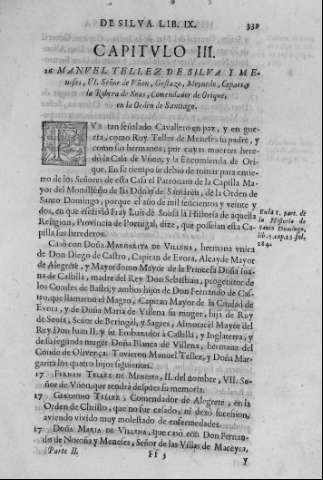 DE SILVA. LIB. IX.
CAPITVLO III.
16 MANVEL TELLEZ DE SILVA Y ME-
neses, VI. Señor de Vñon, Gestazo, Meynedo,
la Ribera de Soas, Comendador de Orique,
en la Orden de Santiago.
FVe tan señalado Cavallero en paz, y en gue-
rra, como Ruy Tellez de Meneses su padre, y
como sus hermanos, por cuyas muertes here-
dò la Casa de Vñon, y la Encomienda de Ori-
que. En su tiempo se debiò de minorar
mo de los Señores de esta Casa el Patronato de la Capilla Ma-
yor del Monasterio de las Donas de Santarèn, de la Orden de
Santo Domingo, porque el año de mil seiscientos y veinte y
dos, en que escriviò Fray Luis de Sousa la Historia de aquella
Religion, Provincia de Portugal, dize, que posseian esta Ca-
pilla sus herederos.
En la 2. part. de
la Historia de
Santo Domingo,
lib. cap. 23. fol.
Casò con DOÑA MARGARITA DE VILLENA, hermana vnica
de Don Diego de Castro, Capitan de Evora, Alcayde Mayor
de Alegrete, y Mayordomo Mayor de la Princesa Doña Jua-
na de Castilla, madre del Rey Don Sebastian, progenitor de
los Condes de Basto; y ambos hijos de Don Fernando de Cas-
tro, que llamaron el Magro, Capitan Mayor de la Ciudad de
Evora, y de Doña Maria de Villena su muger, hija de Ruy
de Sousa, Señor de Beringèl, y Sagres, Almotacèl Mayor del
Rey Don Juan II. y su Embaxador à Castilla, y Inglaterra, y
de su segunda muger Doña Blanca de Villena, hermana del
Conde de Olivença. Tuvieron Manuel Tellez, y Doña Mar-
garita los quatro hijos siguientes.
17 FERNAN TELLEZ DE MENESES, II. del nombre, VII. Se-
ñor de Vñon, que tendrà despues su memoria.
17 GERONIMO TELLEZ, Comendador de Alegrete, en la
Orden de Christo, que no fue casado, ni dexò sucesion,
aviendo vivido muy molestado de enfermedades.
17 DOÑA MARIA DE VILLENA, que casò con Don Fernan-
do de Noroña y Meneses, Señor de las Villas de Maceyra,
Parte II. Ff 3 y